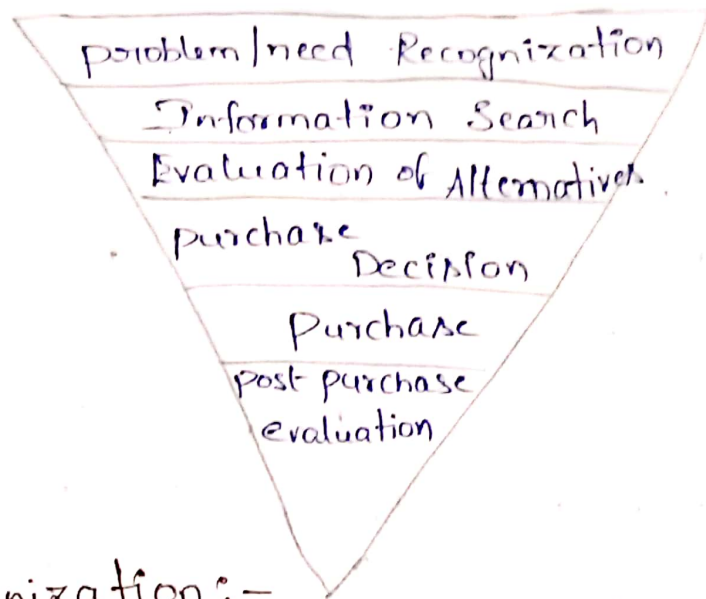 problem/need Recognization
Information Search
Evaluation of Alternatives.
purchase
Decision
Purchase
post purchase
evaluation
nization:-